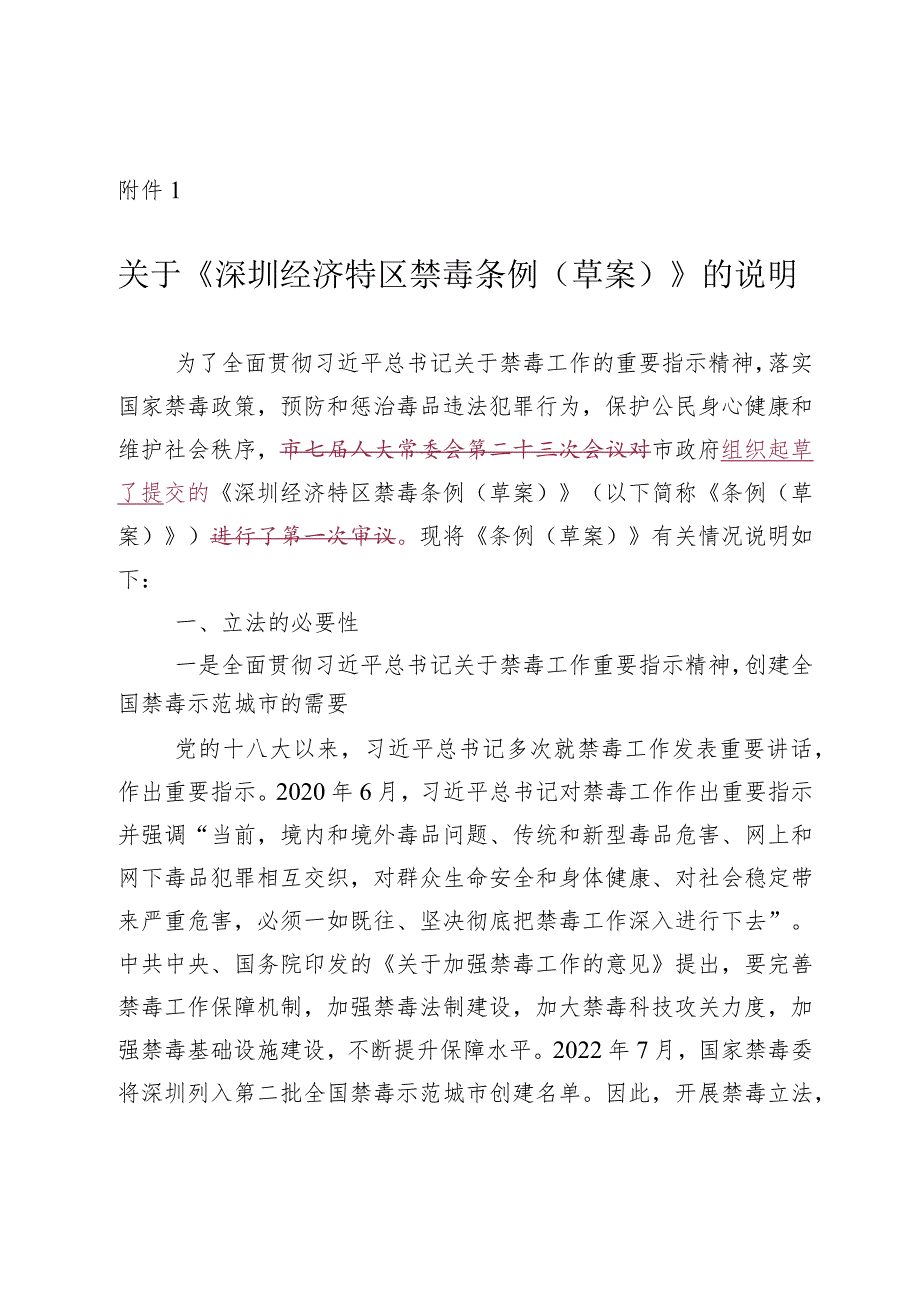 附件1
关于《深圳经济特区禁毒条例（草案）》的说明
为了全面贯彻习近平总书记关于禁毒工作的重要指示精神，落实
国家禁毒政策，预防和惩治毒品违法犯罪行为，保护公民身心健康和
维护社会秩序，市七届人大常委会第二十三次会议对市政府组织起草
了提交的《深圳经济特区禁毒条例（草案）》（以下简称《条例（草
案）》）进行了第一次审议。现将《条例（草案）》有关情况说明如
下：
一、立法的必要性
一是全面贯彻习近平总书记关于禁毒工作重要指示精神，创建全
国禁毒示范城市的需要
党的十八大以来，习近平总书记多次就禁毒工作发表重要讲话，
作出重要指示。2020年6月，习近平总书记对禁毒工作作出重要指示
并强调“当前，境内和境外毒品问题、传统和新型毒品危害、网上和
网下毒品犯罪相互交织，对群众生命安全和身体健康、对社会稳定带
来严重危害，必须一如既往、坚决彻底把禁毒工作深入进行下去”。
中共中央、国务院印发的《关于加强禁毒工作的意见》提出，要完善
禁毒工作保障机制，加强禁毒法制建设，加大禁毒科技攻关力度，加
强禁毒基础设施建设，不断提升保障水平。2022年7月，国家禁毒委
将深圳列入第二批全国禁毒示范城市创建名单。因此，开展禁毒立法，